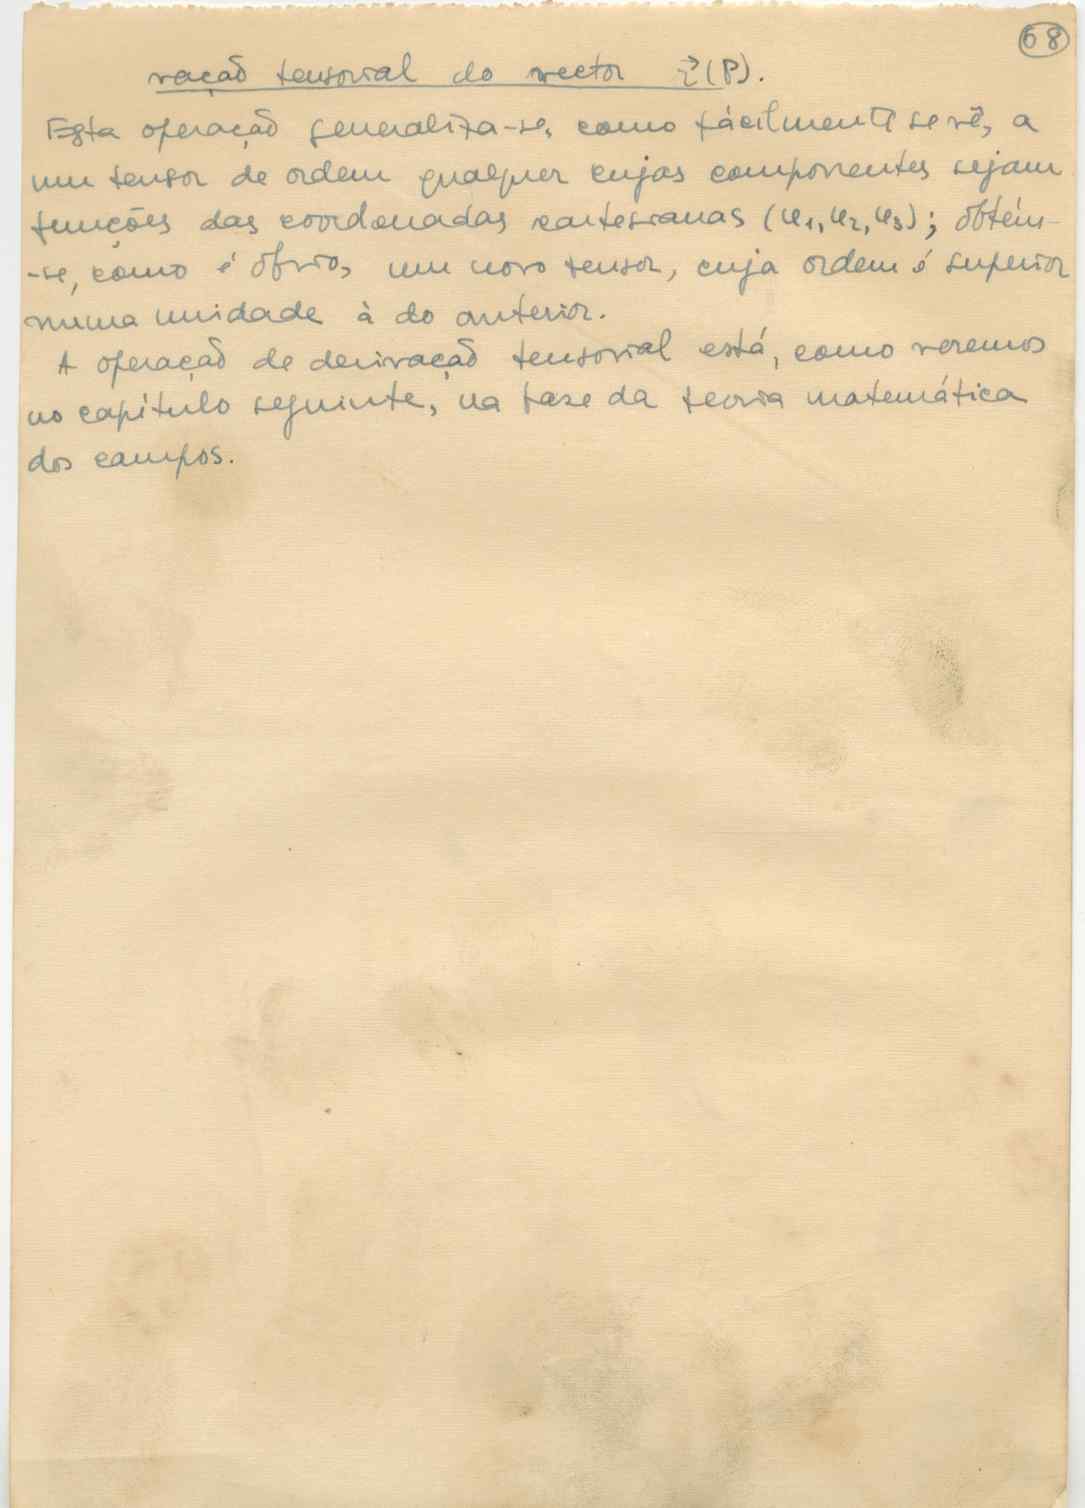 68
vação tensorial do vector (P).
Esta operação generaliza-se, como fácilmente se vê, a
um tensor de ordem qualquer cujas componentes sejam
funções das coordenadas cartesianas (u₁, u₂, u₃); obtém-
-se, como é óbvio, um novo tensor, cuja ordem é superior
numa unidade à do anterior.
A operação de derivação tensorial está, como veremos
no capítulo seguinte, na base da teoria matemática
dos campos.